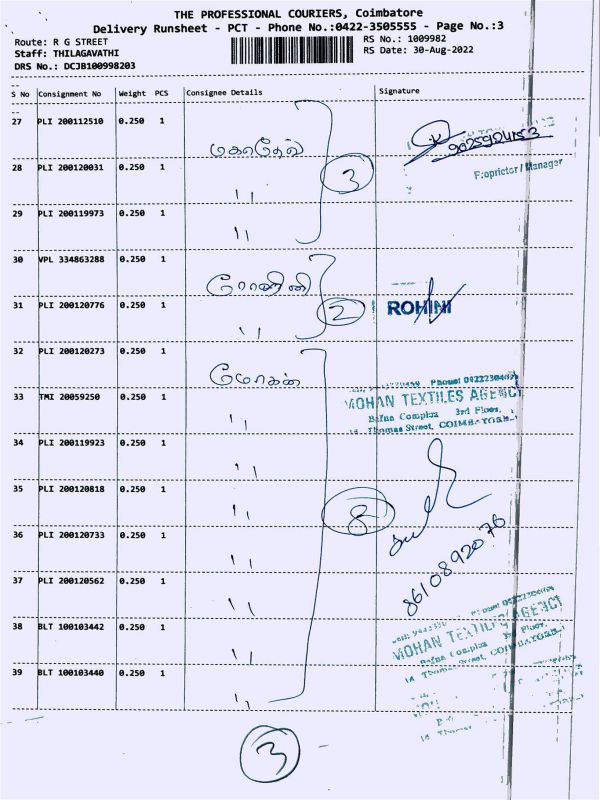 THE PROFESSIONAL COURIERS, Coimbatore
Delivery Runsheet - PCT - Phone No.:0422-3505555 - Page No.:3
Route: R G STREET
RS No.: 1009982
Staff: THILAGAVATHI
RS Date: 30-Aug-2022
DRS No.: DCJB100998203
S No Consignment No Weight PCS Consignee Details Signature
27 PLI 200112510 0.250 1
மகாதேவ்
9025904153
28 PLI 200120031 0.250 1
3
Proprietor / Manager
"
29 PLI 200119973 0.250 1
"
30 VPL 334863288 0.250 1
ரோஹிணி
31 PLI 200120776 0.250 1
2
ROHINI
"
32 PLI 200120273 0.250 1
மோகன்
33 TMI 20059250 0.250 1
MOHAN TEXTILES AGENCY
Bafna Complex 3rd Floor,
Thomas Street, COIMBATORE
"
34 PLI 200119923 0.250 1
"
35 PLI 200120818 0.250 1
8
"
36 PLI 200120733 0.250 1
8610892076
"
37 PLI 200120562 0.250 1
"
38 BLT 100103442 0.250 1
MOHAN TEXTILES AGENCY
Bafna Complex 3rd Floor,
14 Thomas Street, COIMBATORE
"
39 BLT 100103440 0.250 1
"
3